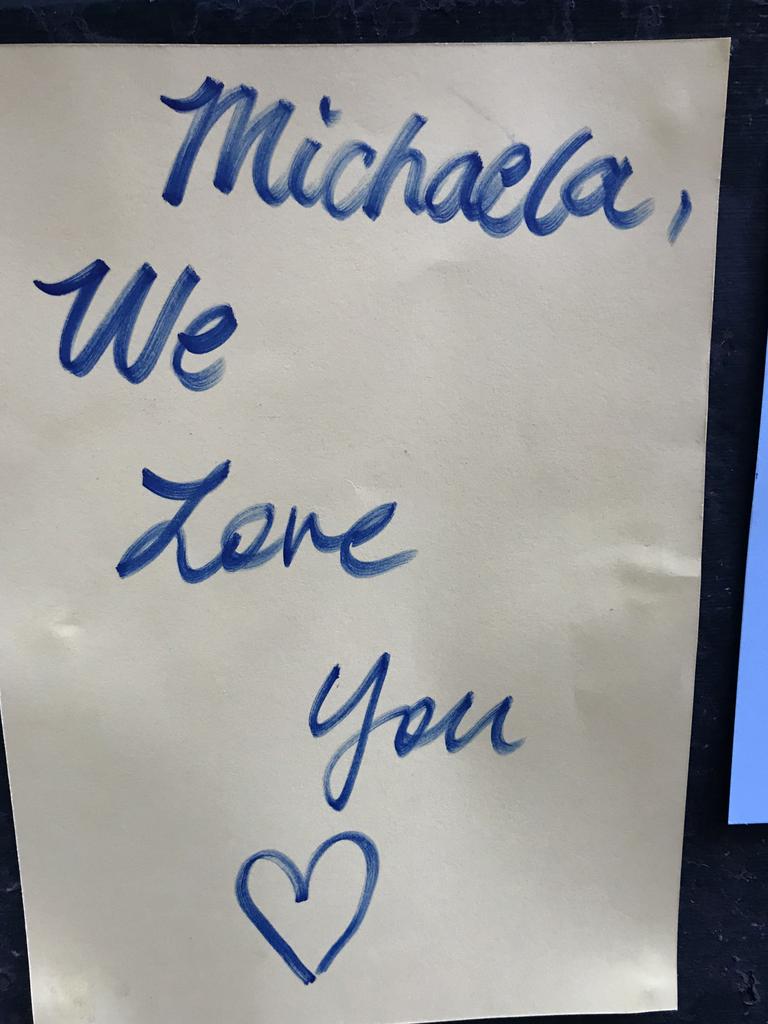 Michaela,
We
Love
You